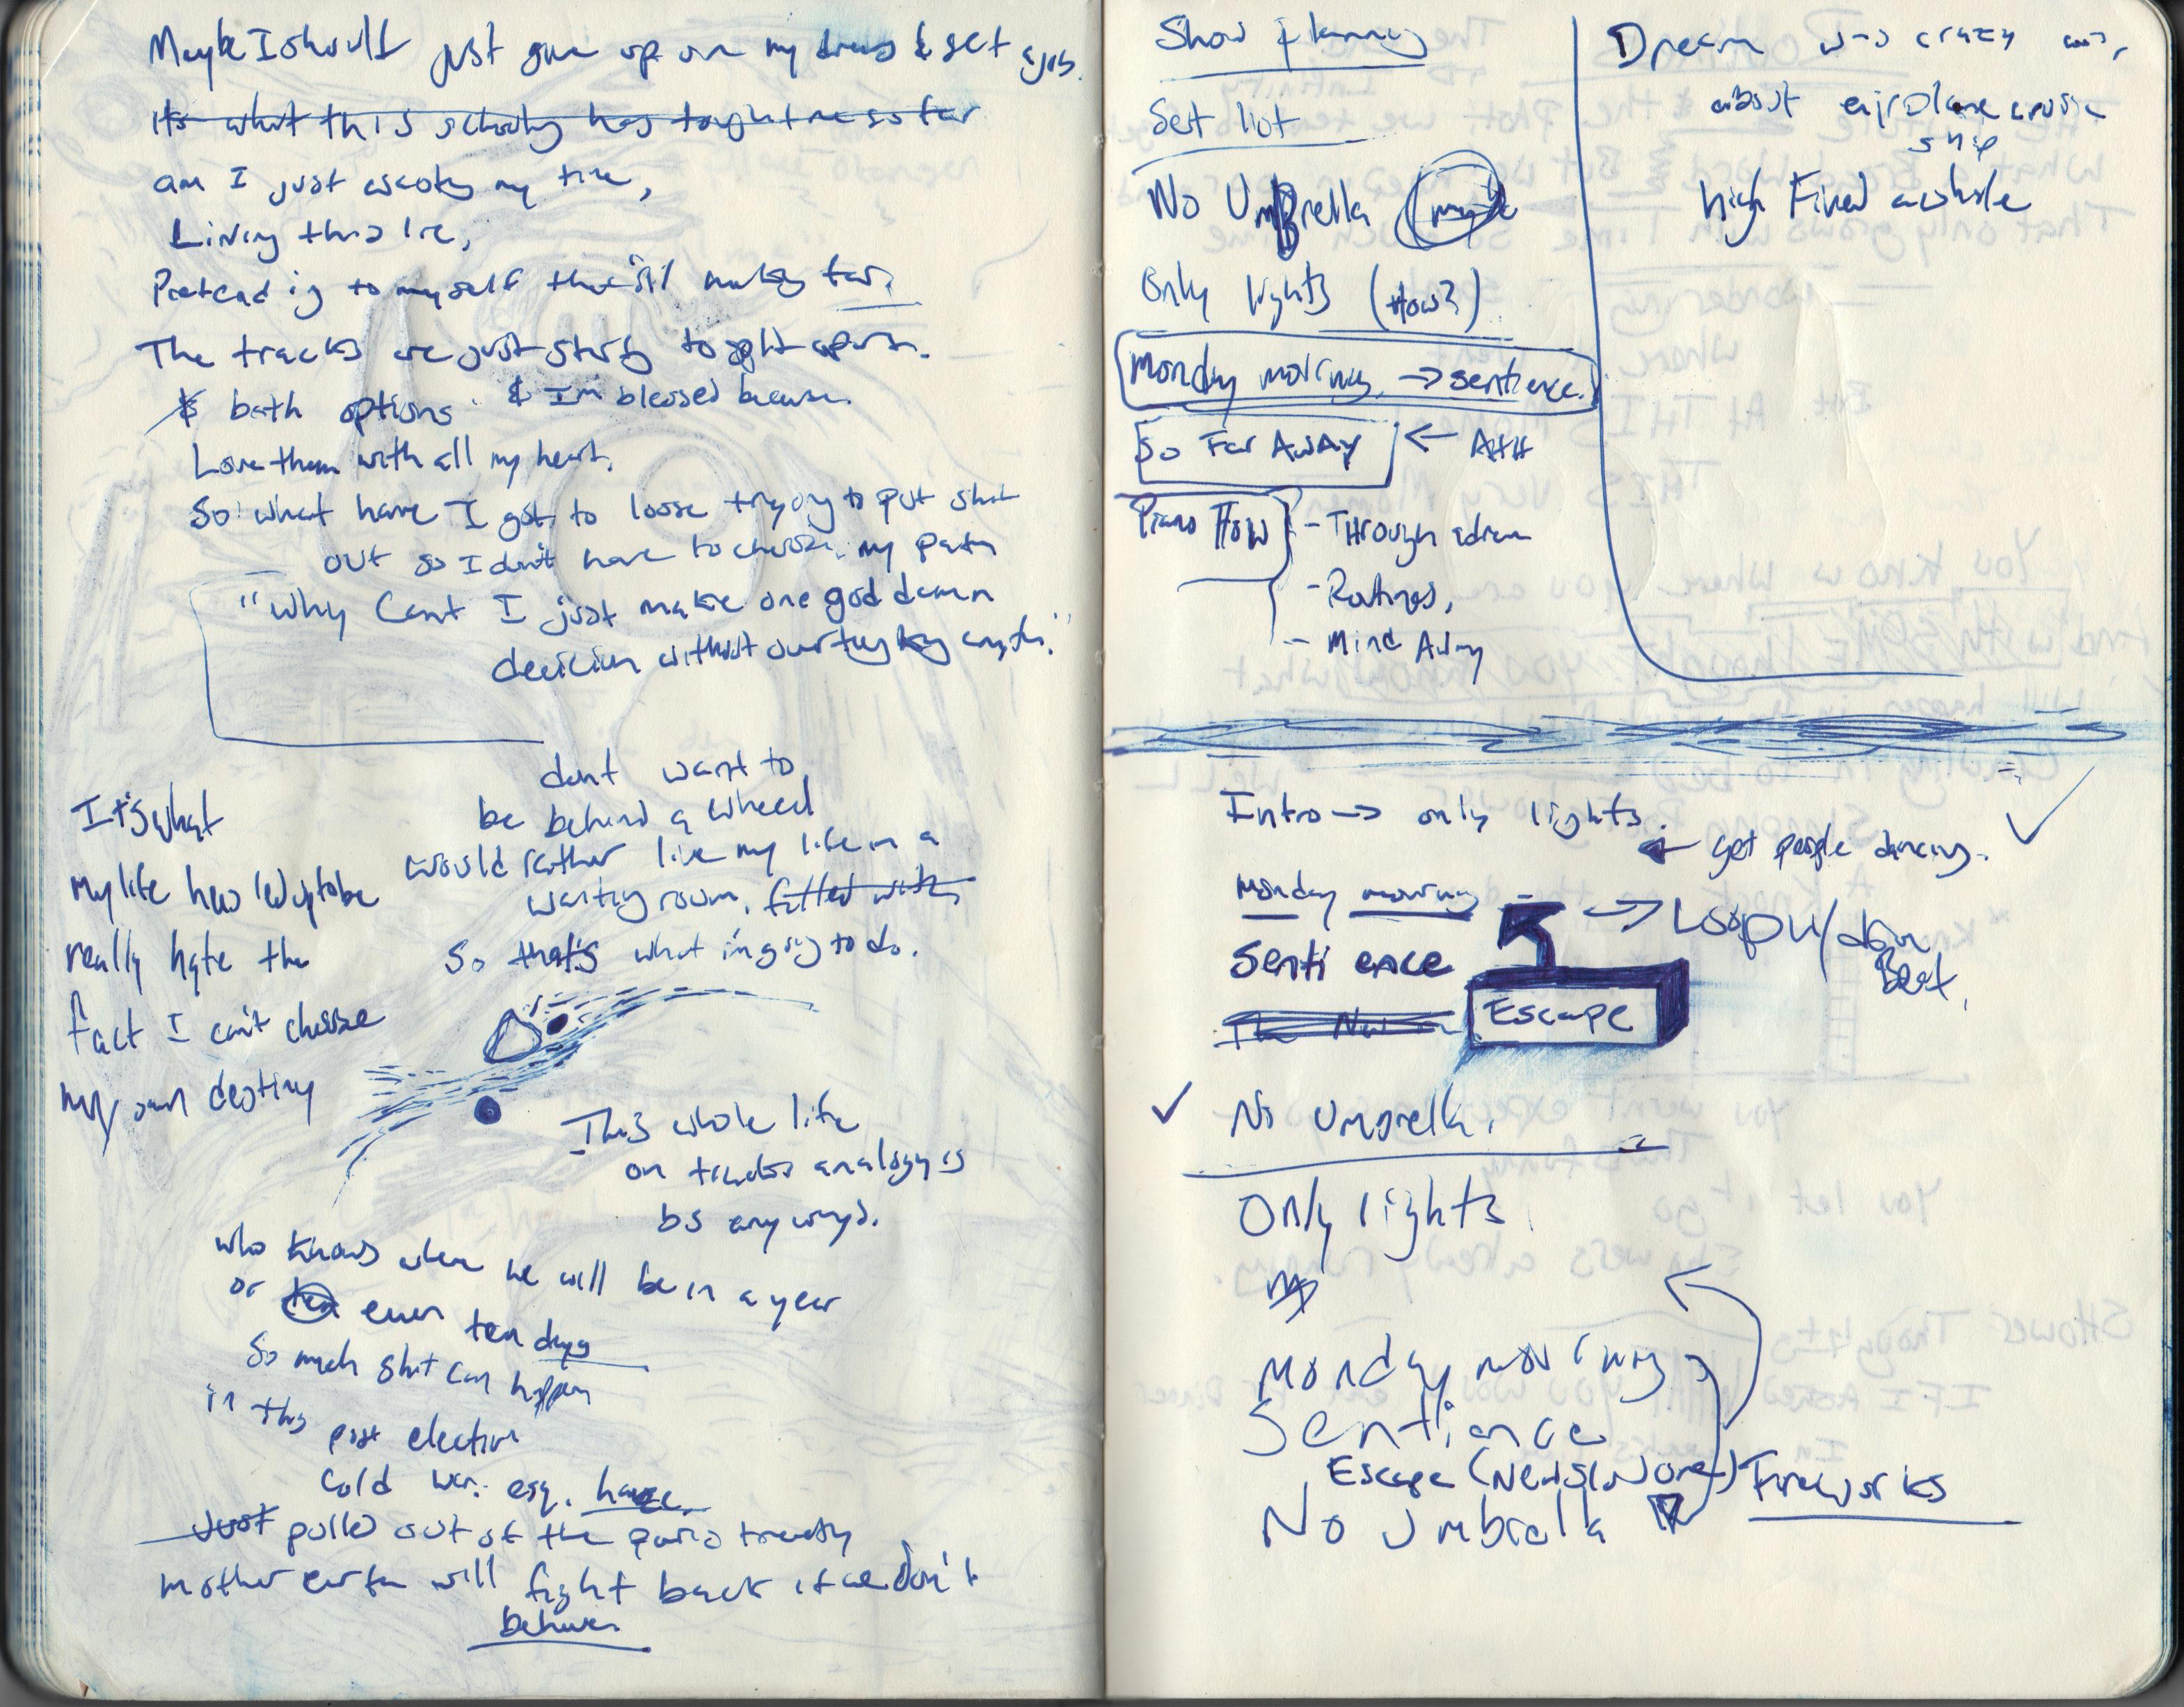 Maybe I should just give up on my dreams & get a job.
Its what this schooling has taught me so far
am I just wasting my time,
Living this lie,
Pretending to myself that i'll make it far.
The tracks are just starting to split apart.
& both options & I'm blessed because
Love them with all my heart.
So what have I got to loose trying to put shit
out so I don't have to choose my path
"Why Cant I just make one god damn
decision without overthinking anything."
dont want to
be behind a wheel
would rather live my life in a
waiting room, filled with
So that's what im going to do.
It's what
my life has led up to be
really hate the
fact I can't choose
my own destiny
This whole life
on tracks analogy is
bs anyways.
who knows where we will be in a year
or ten even ten days
So much shit can happen
in this
post election
Cold war. esq. haze.
Just pulled out of the paris treaty
mother earth will fight back if we don't
behave
Show planning
Set list
No Umbrella (maybe
Only lights (How?)
Monday morning. → sentience.
So Far Away ← AHH
Piano How
- Through a dream
- Ratings,
- Mind Away
Dream was crazy
about airplane cruise
ship
high Fived a whole
Intro → only lights.
← get people dancing.
Monday morning → Loop w/ down
Beat.
Sentience
The
Escape
No Umbrella.
Only lights
Monday morning
Sentiance
Escape (Needs Work) Fireworks
No Umbrella